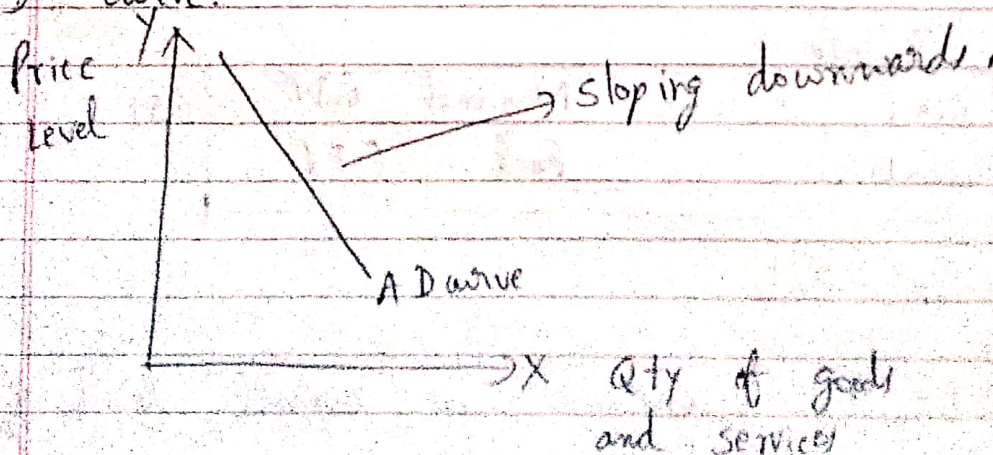 curve.
Y
Price
Level
Sloping downwards.
A D curve
X Qty of goods
and services